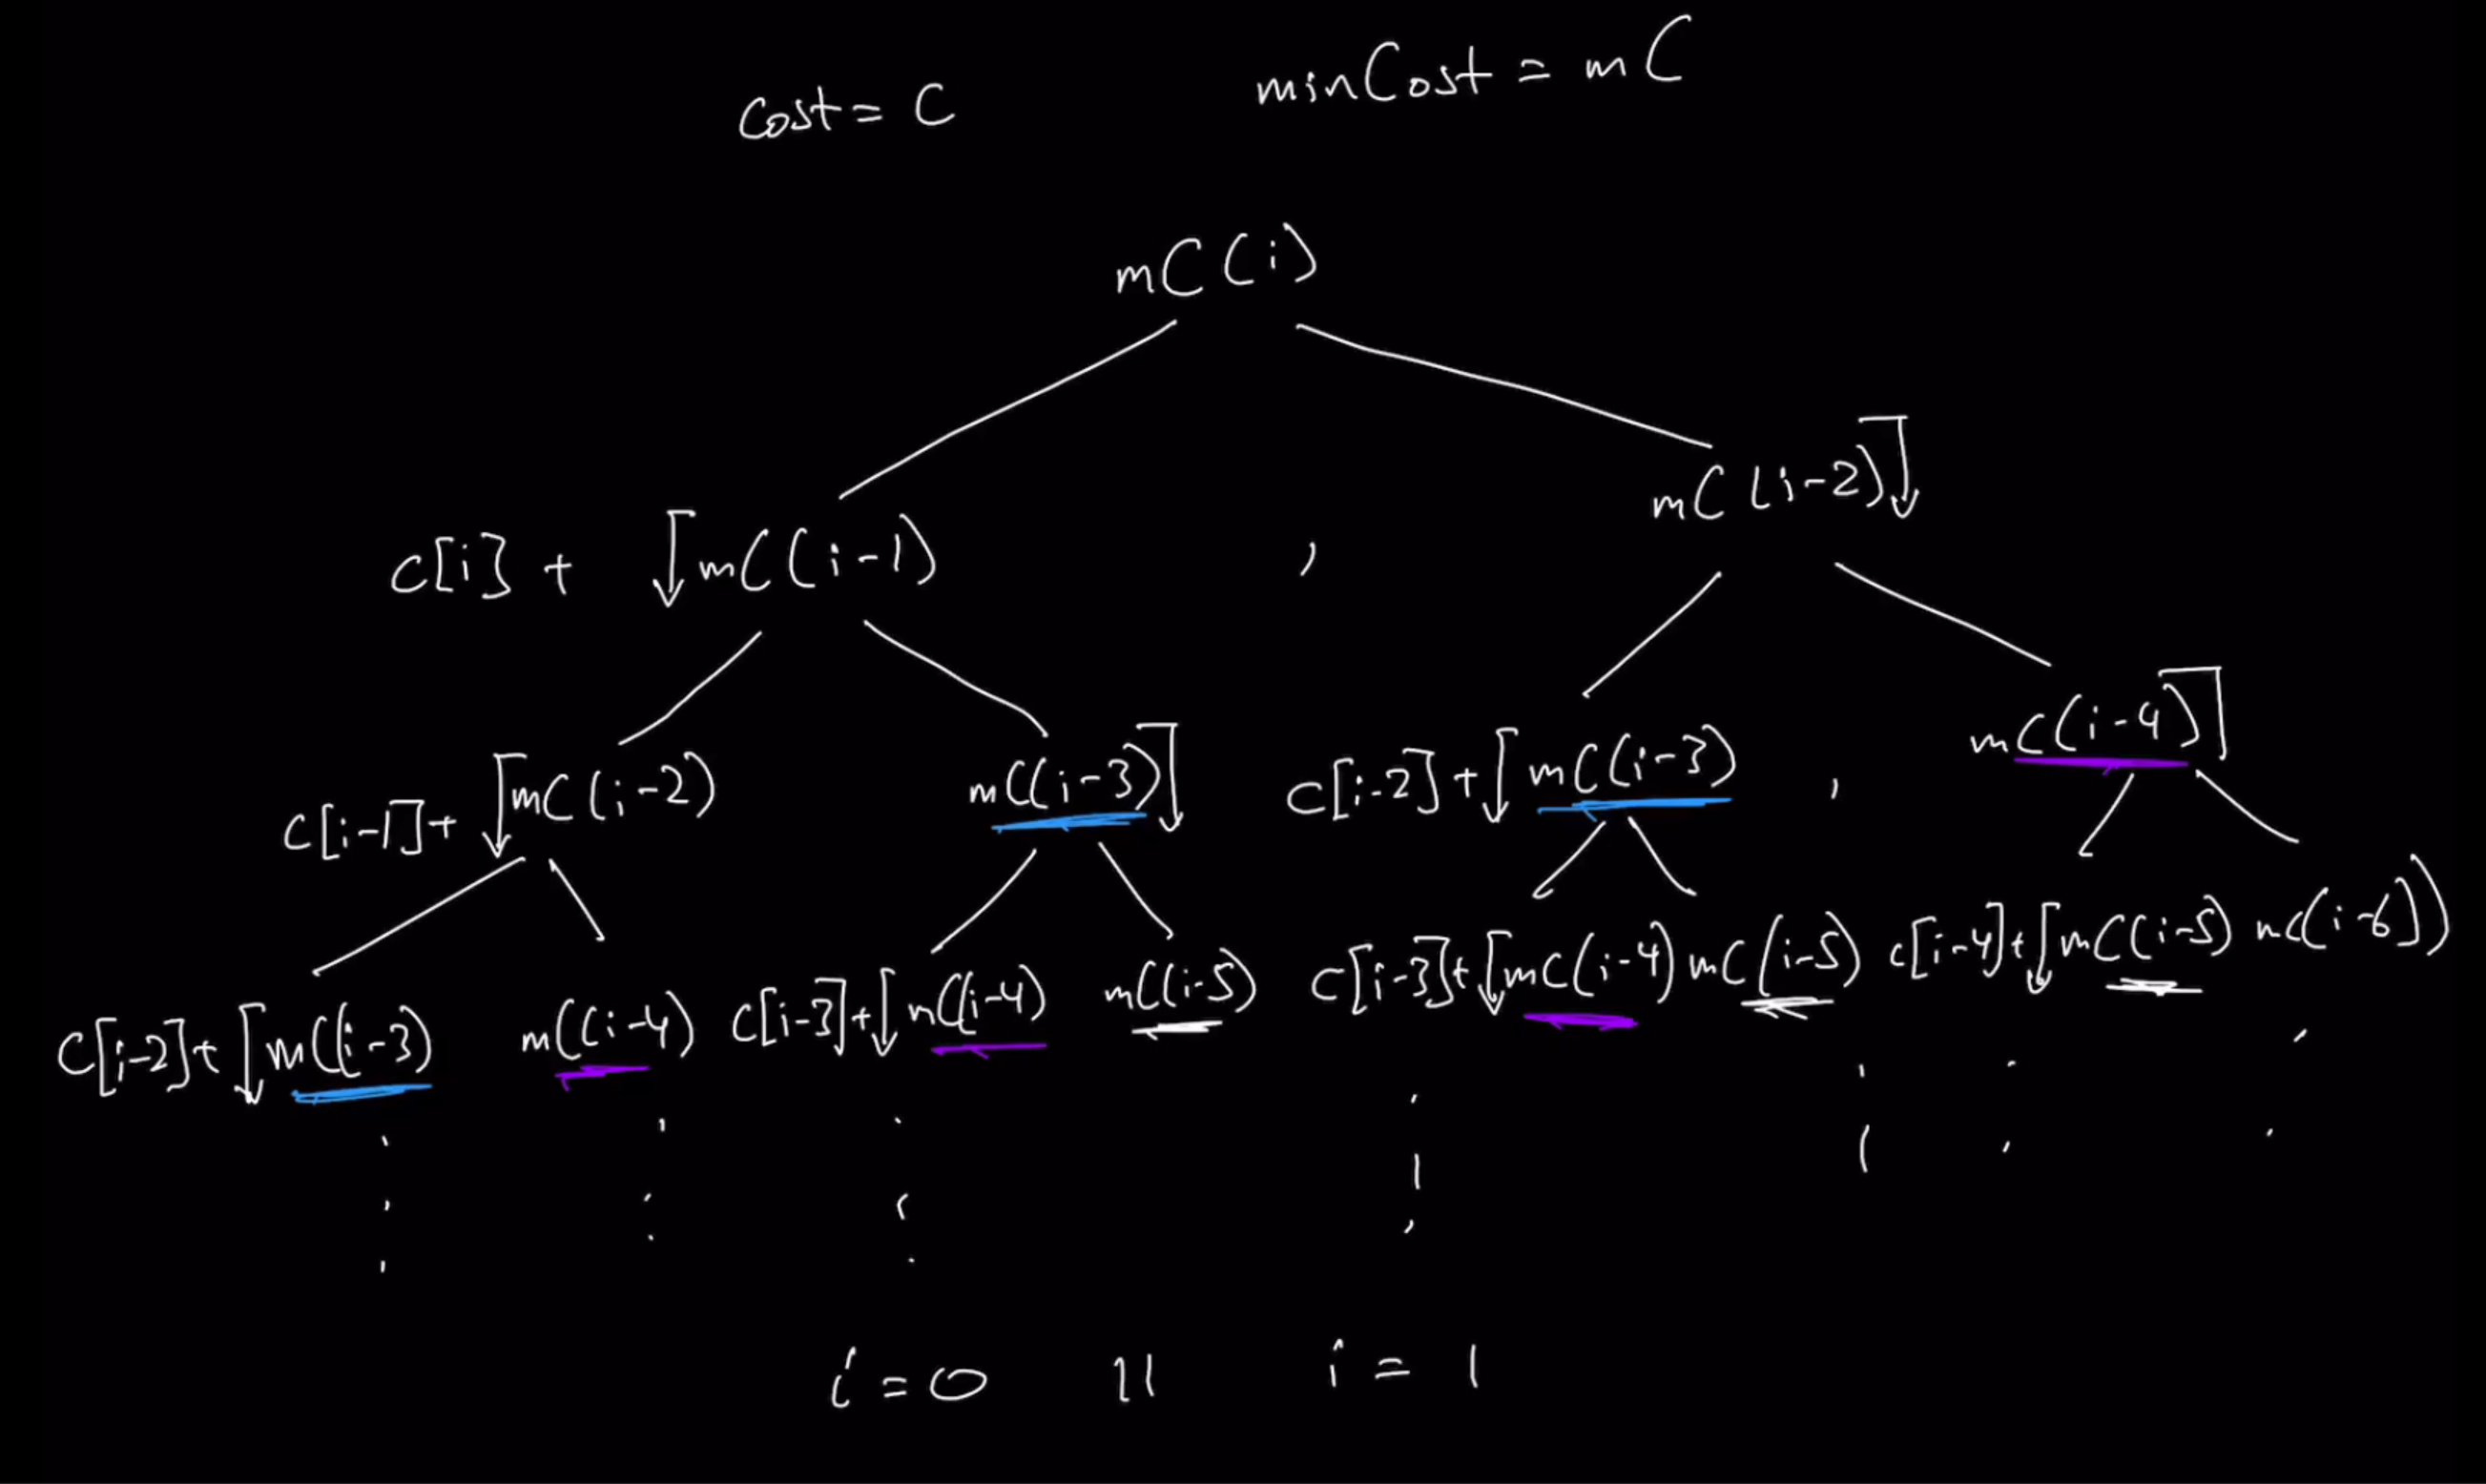 Cost = C minCost = mC
mC(i)
C[i] + ↓[mC(i-1) , mC(i-2)]↓
C[i-1] + ↓[mC(i-2) mC(i-3)]↓ C[i-2] + ↓[mC(i-3) , mC(i-4)]
C[i-2] + ↓[mC(i-3) mC(i-4) C[i-3] + ↓[mC(i-4) mC(i-5) C[i-3] + ↓[mC(i-4) mC(i-5) C[i-4] + ↓[mC(i-5) mC(i-6))
i = 0 || i = 1